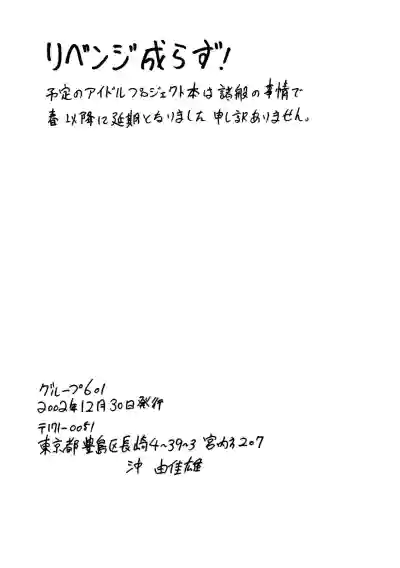 リベンジ成らず!
予定のアイドルプロジェクト本は諸般の事情で
春以降に延期となりました 申し訳ありません。
グループ601
2002年12月30日発行
〒171-0051
東京都豊島区長崎4-39-3 宮内方207
沖 由佳雄